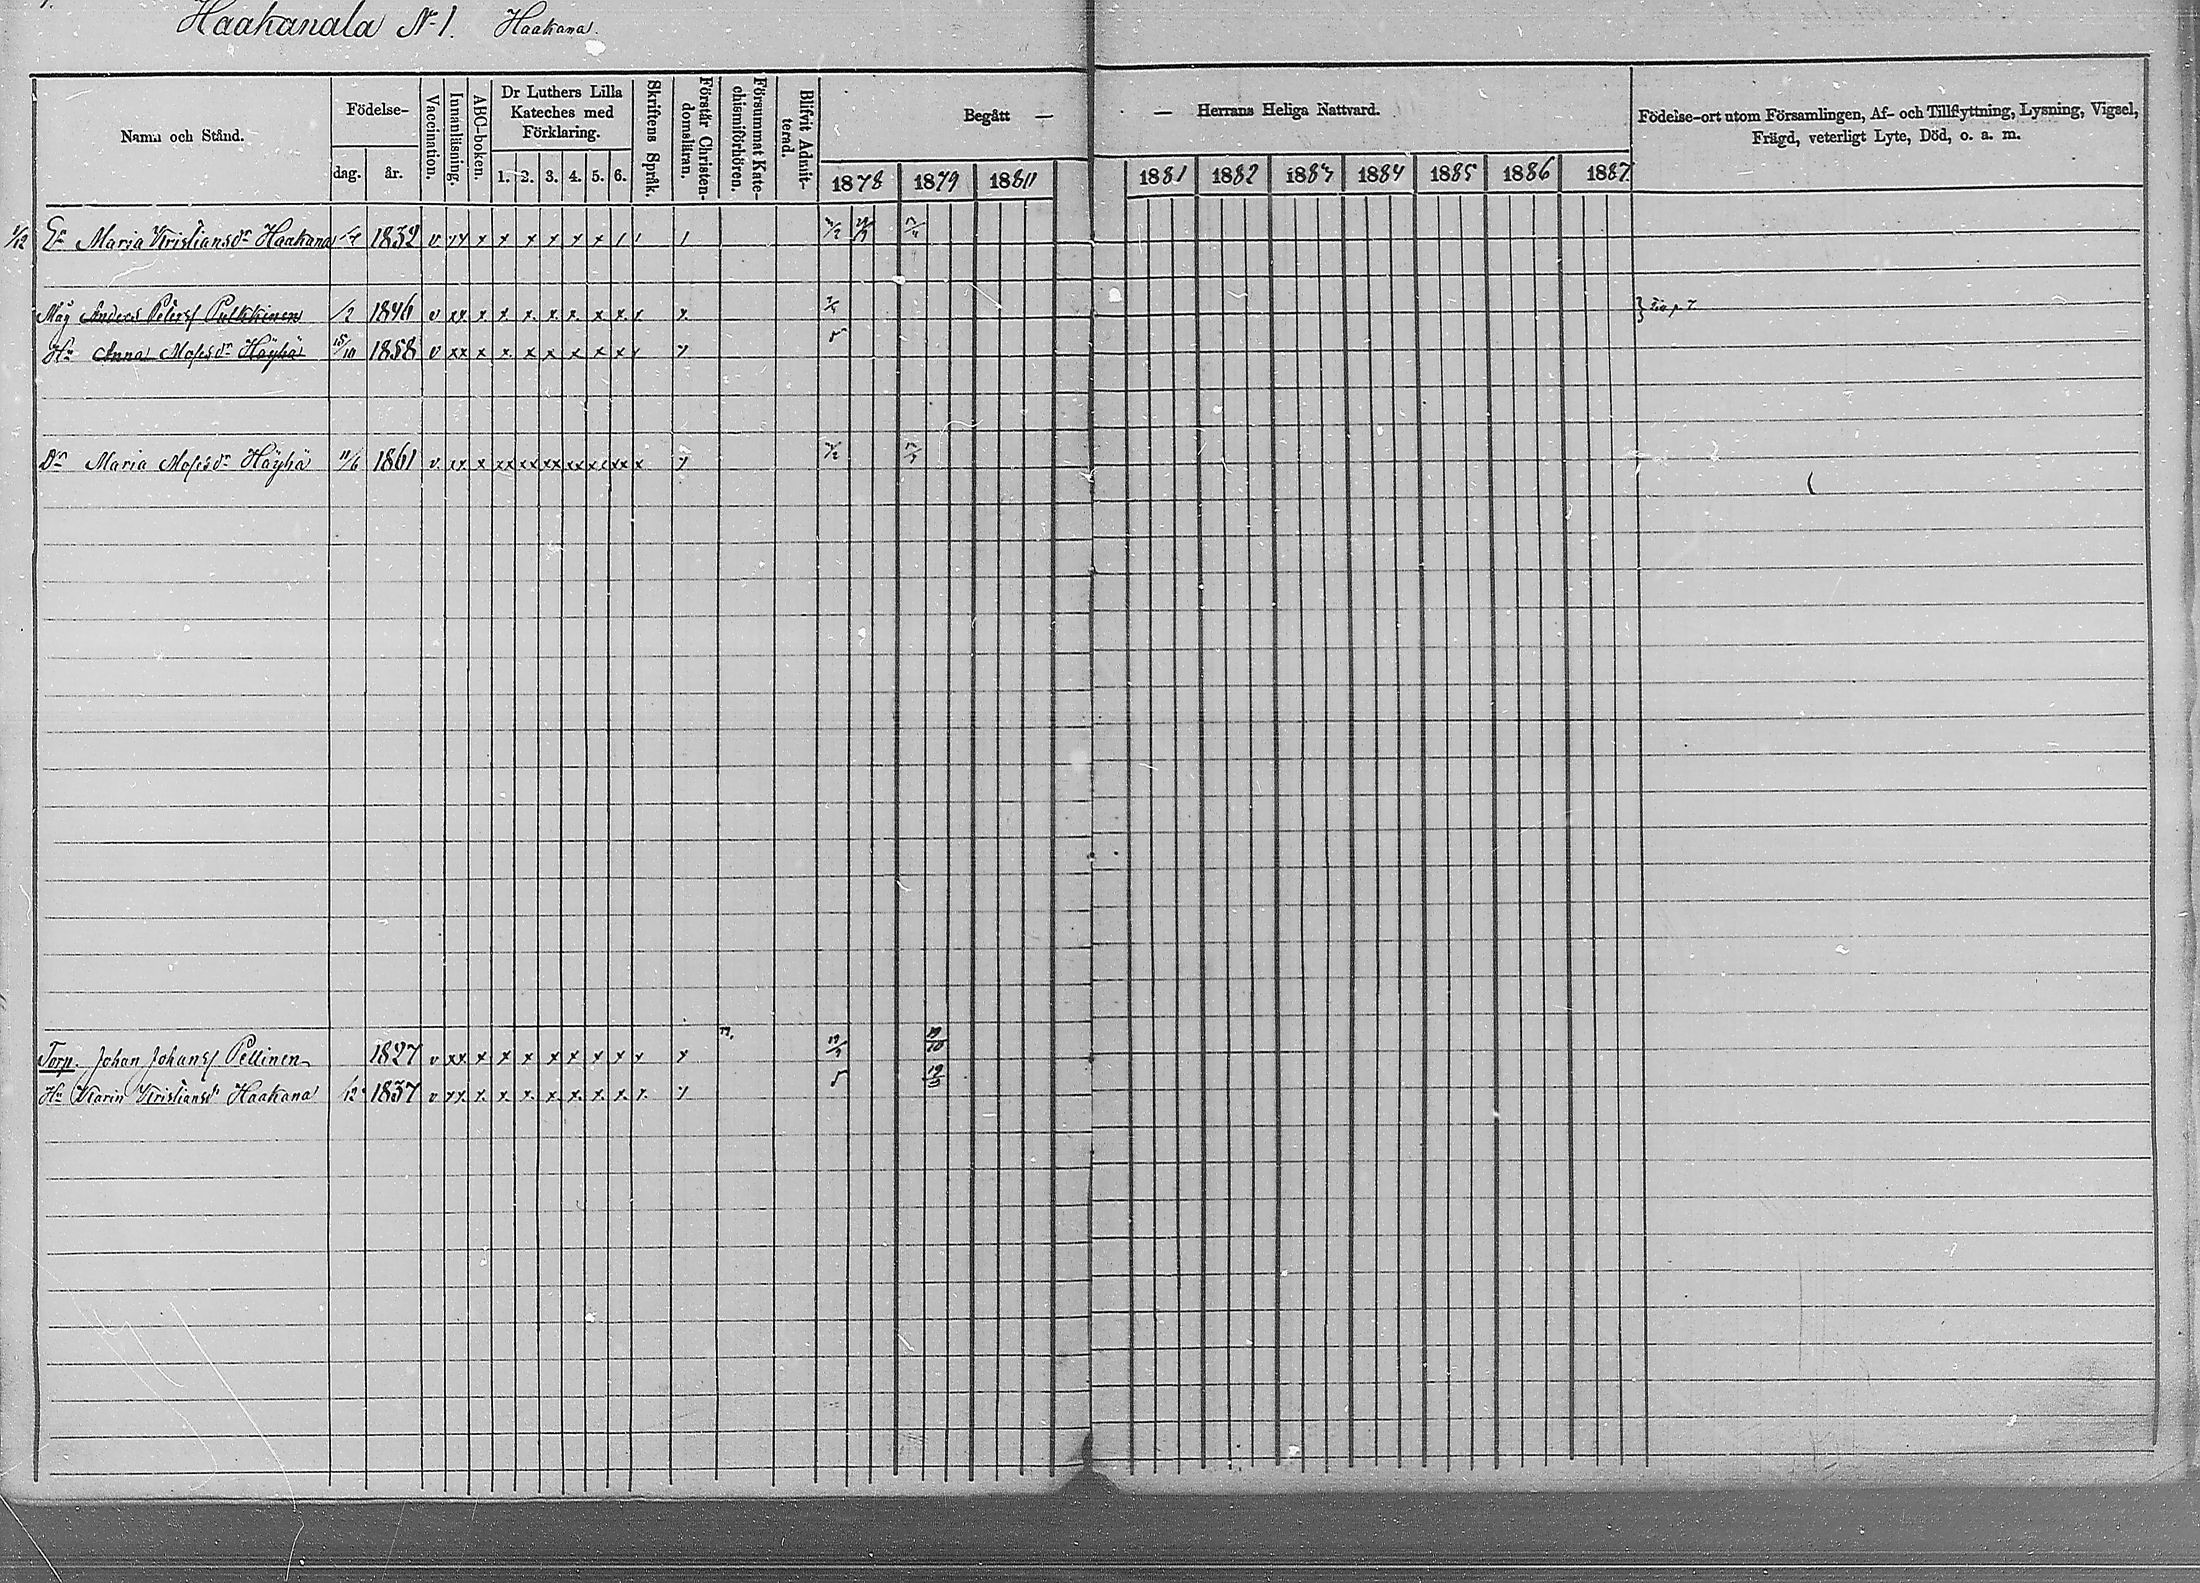 Haakanala N 1. Haakana.
Namn och Stånd.
Födelse-
dag. år.
Vaccination.
Innanläsning.
ABC-boken.
Dr Luthers Lilla
Kateches med
Förklaring.
1. 2. 3. 4. 5. 6.
Skriftens Språk.
Förstår Christen-
domsläran.
Försummat Kate-
chismiförhören.
Blifvit Admit-
terad.
Begått —
1878 1879 1880
— Herrans Heliga Nattvard.
1881 1882 1883 1884 1885 1886 1887
Födelse-ort utom Församlingen, Af- och Tillflyttning, Lysning, Vigsel,
Frägd, veterligt Lyte, Död, o. a. m.
1/12 En Maria Kristiansdr Haakana 1832 v xx x x x x x x / / /
Måg Anders Petersf Pulkkinen /2 1846 v xx x x x x x x x x x
Hu Anna Mosesdr Häyhä 15/10 1858 v xx x x x x x x x x x
Dr Maria Mosesdr Häyhä 11/6 1861 v xx x xx xx xx xx xx xx x x
Torp. Johan Johansf Pellinen 1827 v xx x x x x x x x x x 19/10
Hu Karin Kristiansdr Haakana /12 1837 v xx x x x x x x x x x 19/3